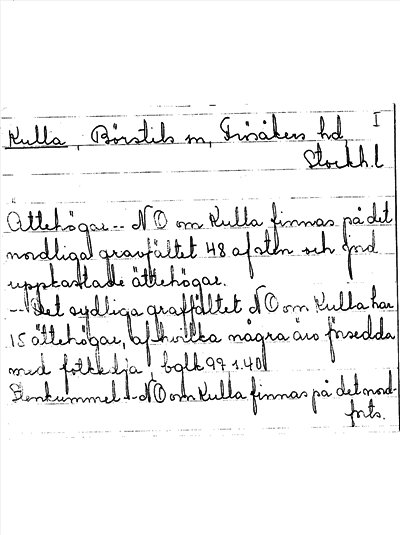 I
Kulla, Börstils sn, Frösåkers hd
Stockh. l
Ättehögar -- NO om Kulla finnas på det
nordliga gravfältet 48 af sten och jord
uppkastade ättehögar.
-- Det sydliga gravfältet NO om Kulla har
15 ättehögar, af hvilka några äro försedda
med fotkedja, 
Stenkummel -- NO om Kulla finnas på det nord-
forts.